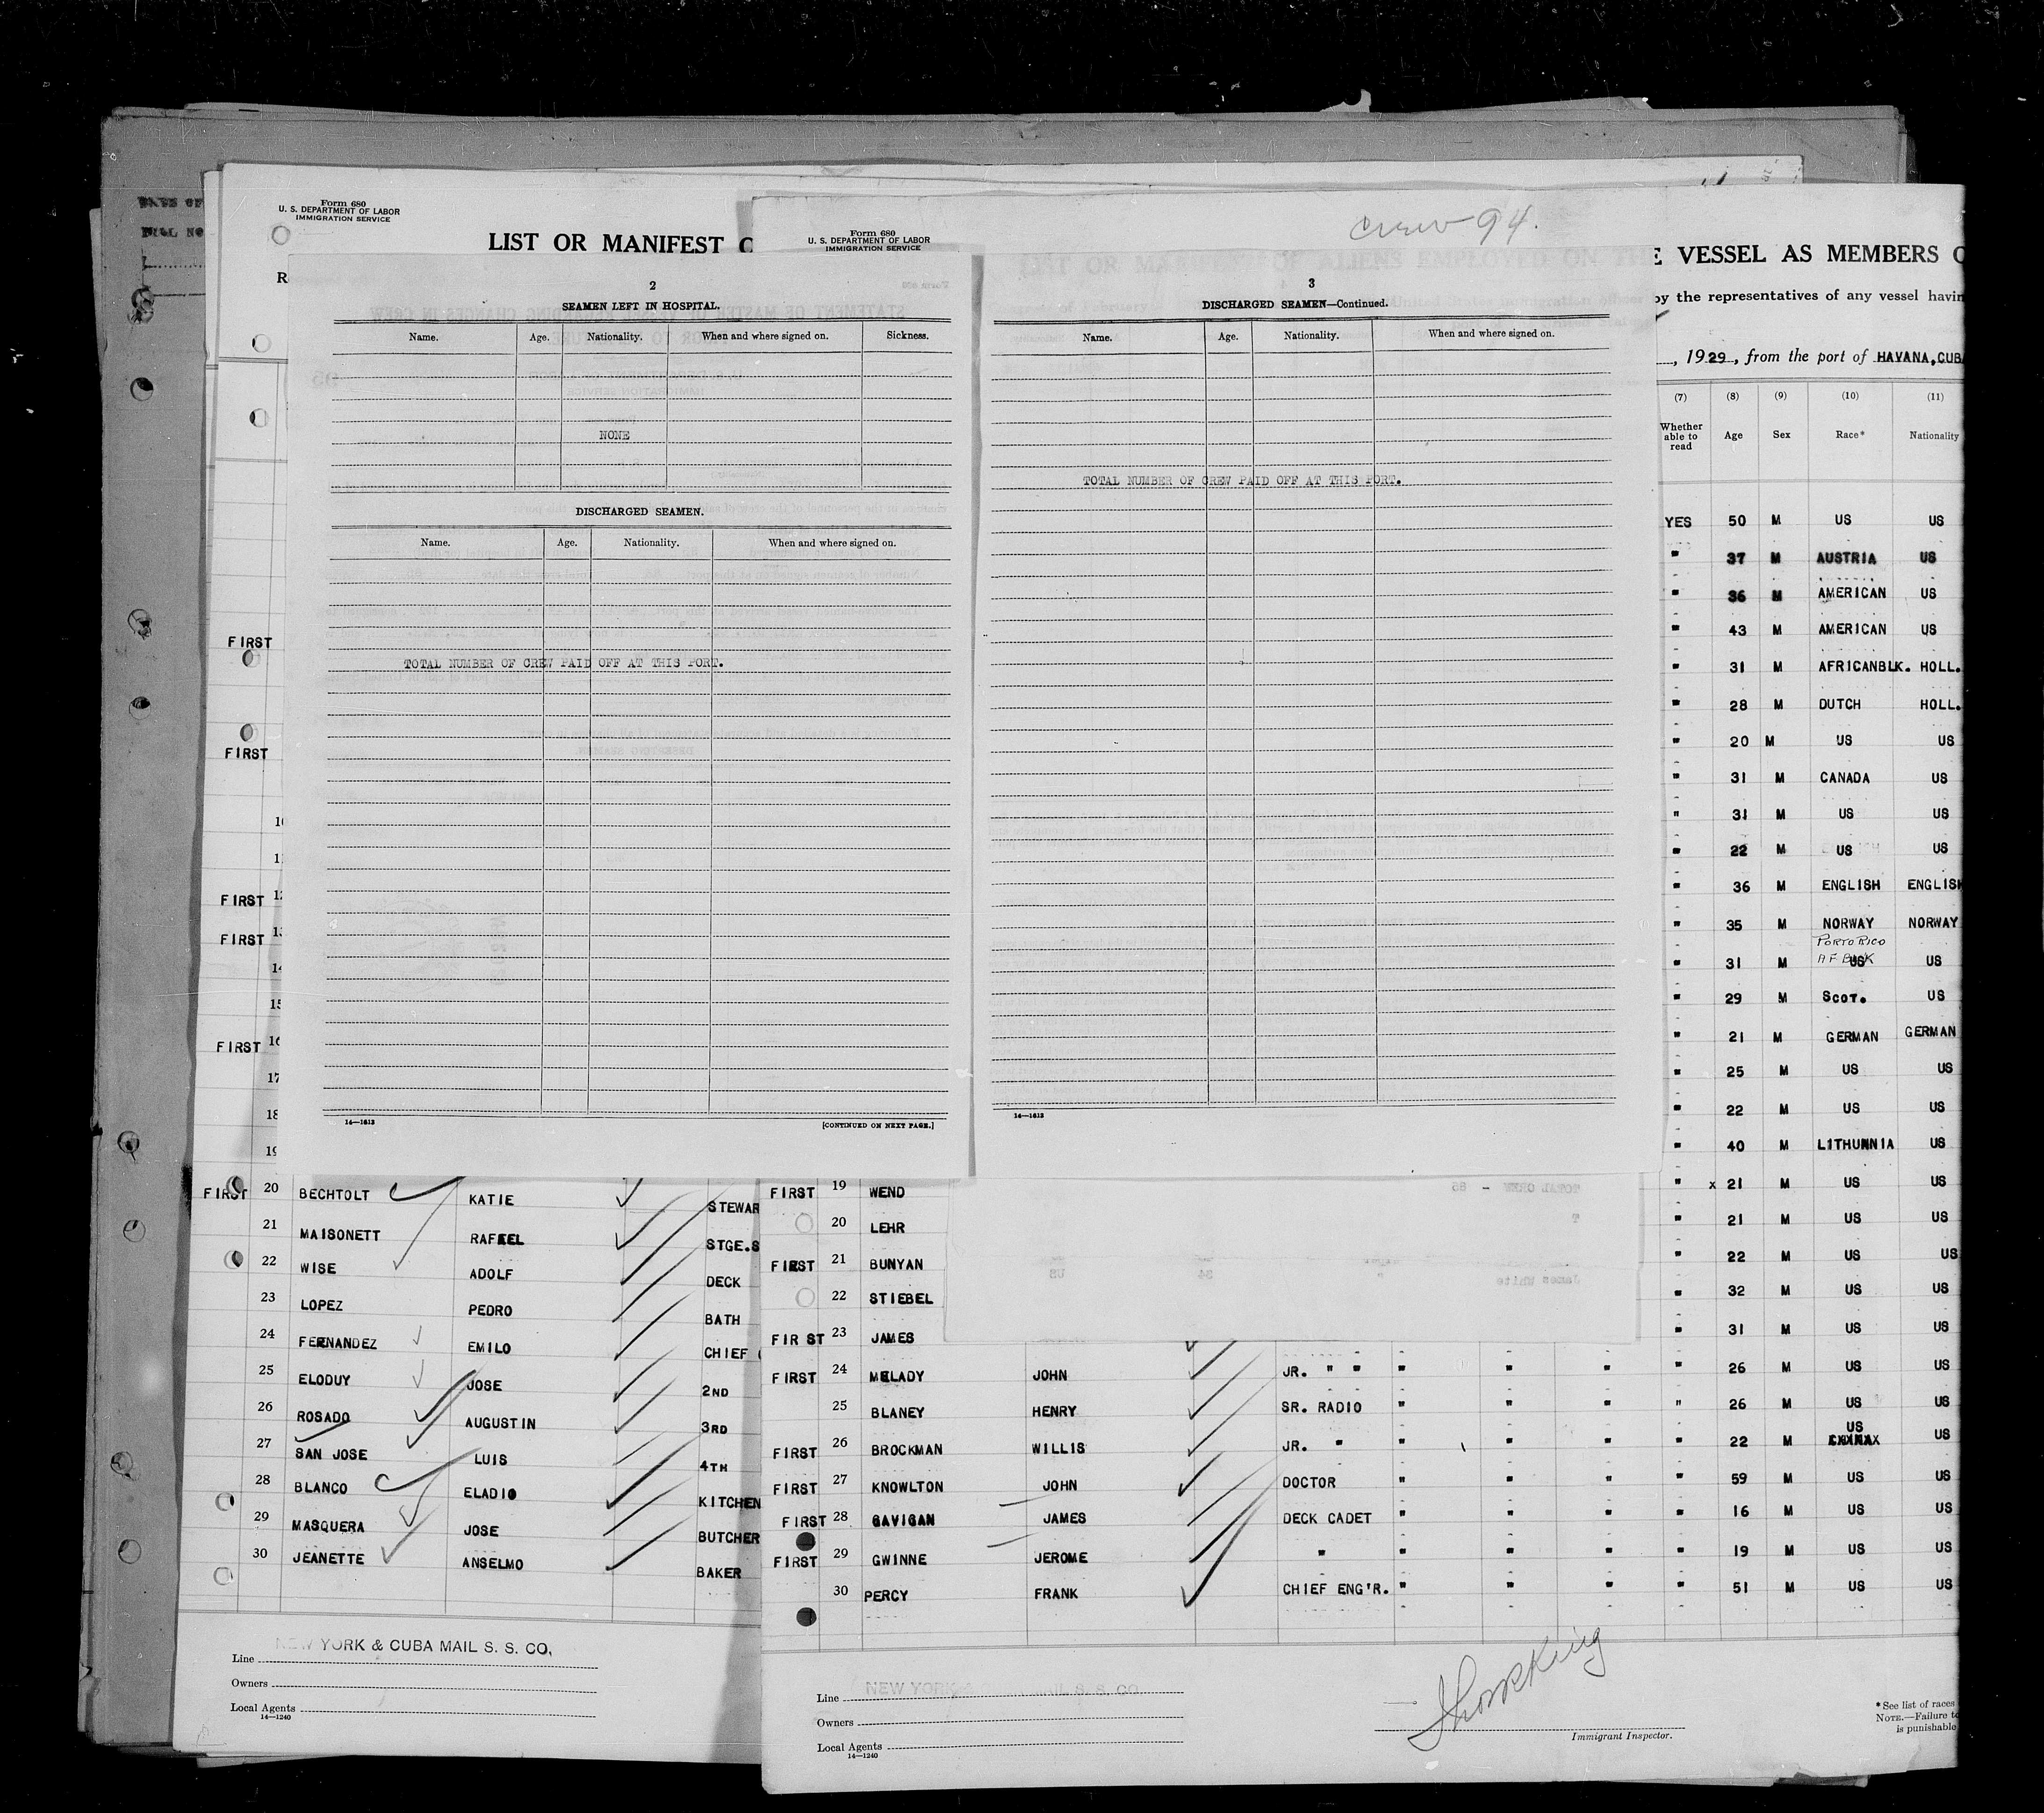 DATE OF
Form 680
U. S. DEPARTMENT OF LABOR
IMMIGRATION SERVICE
LIST OR MANIFEST O
R
Form 680
U. S. DEPARTMENT OF LABOR
IMMIGRATION SERVICE
Crew 94.
LIST OR MANIFEST OF ALIENS EMPLOYED ON THE VESSEL AS MEMBERS O
by the representatives of any vessel havin
, 1929, from the port of HAVANA, CUBA
2
SEAMEN LEFT IN HOSPITAL.
Name. Age. Nationality. When and where signed on. Sickness.
NONE
DISCHARGED SEAMEN.
Name. Age. Nationality. When and where signed on.
TOTAL NUMBER OF CREW PAID OFF AT THIS PORT.
14—1613
[CONTINUED ON NEXT PAGE.]
3
DISCHARGED SEAMEN—Continued.
Name. Age. Nationality. When and where signed on.
TOTAL NUMBER OF CREW PAID OFF AT THIS PORT.
14—1613
(7) (8) (9) (10) (11)
Whether able to read Age Sex Race* Nationality
YES 50 M US US
" 37 M AUSTRIA US
" 36 M AMERICAN US
" 43 M AMERICAN US
" 31 M AFRICANBLK. HOLL.
" 28 M DUTCH HOLL.
" 20 M US US
" 31 M CANADA US
" 31 M US US
" 22 M US US
" 36 M ENGLISH ENGLISH
" 35 M NORWAY NORWAY
PORTO RICO
" 31 M AF BLK US US
" 29 M SCOT. US
" 21 M GERMAN GERMAN
" 25 M US US
" 22 M US US
" 40 M LITHUNNIA US
" x 21 M US US
" 21 M US US
" 22 M US US
" 32 M US US
" 31 M US US
FIRST
FIRST
10
11
FIRST 12
FIRST 13
14
15
FIRST 16
17
18
19
FIRST 20 BECHTOLT KATIE STEWAR
21 MAISONETT RAFEEL STGE.S
22 WISE ADOLF DECK
23 LOPEZ PEDRO BATH
24 FERNANDEZ EMILO CHIEF
25 ELODUY JOSE 2ND
26 ROSADO AUGUSTIN 3RD
27 SAN JOSE LUIS 4TH
28 BLANCO ELADIO KITCHEN
29 MASQUERA JOSE BUTCHER
30 JEANETTE ANSELMO BAKER
NEW YORK & CUBA MAIL S. S. CO.
Line
Owners
Local Agents
14—1240
FIRST 19 WEND
20 LEHR
FIRST 21 BUNYAN
22 STIEBEL
FIRST 23 JAMES
TOTAL CREW - 86
James White " 34 US
FIRST 24 MELADY JOHN JR. " " " " " " 26 M US US
25 BLANEY HENRY SR. RADIO " " " " 26 M US US
US
FIRST 26 BROCKMAN WILLIS JR. " " " " " 22 M US
FIRST 27 KNOWLTON JOHN DOCTOR " " " " 59 M US US
FIRST 28 GAVIGAN JAMES DECK CADET " " " " 16 M US US
FIRST 29 GWINNE JEROME " " " " " 19 M US US
30 PERCY FRANK CHIEF ENG'R. " " " " 51 M US US
Line NEW YORK & S. S. CO.
Owners
Local Agents
14—1240
Immigrant Inspector.
*See list of races
NOTE.—Failure to
is punishable